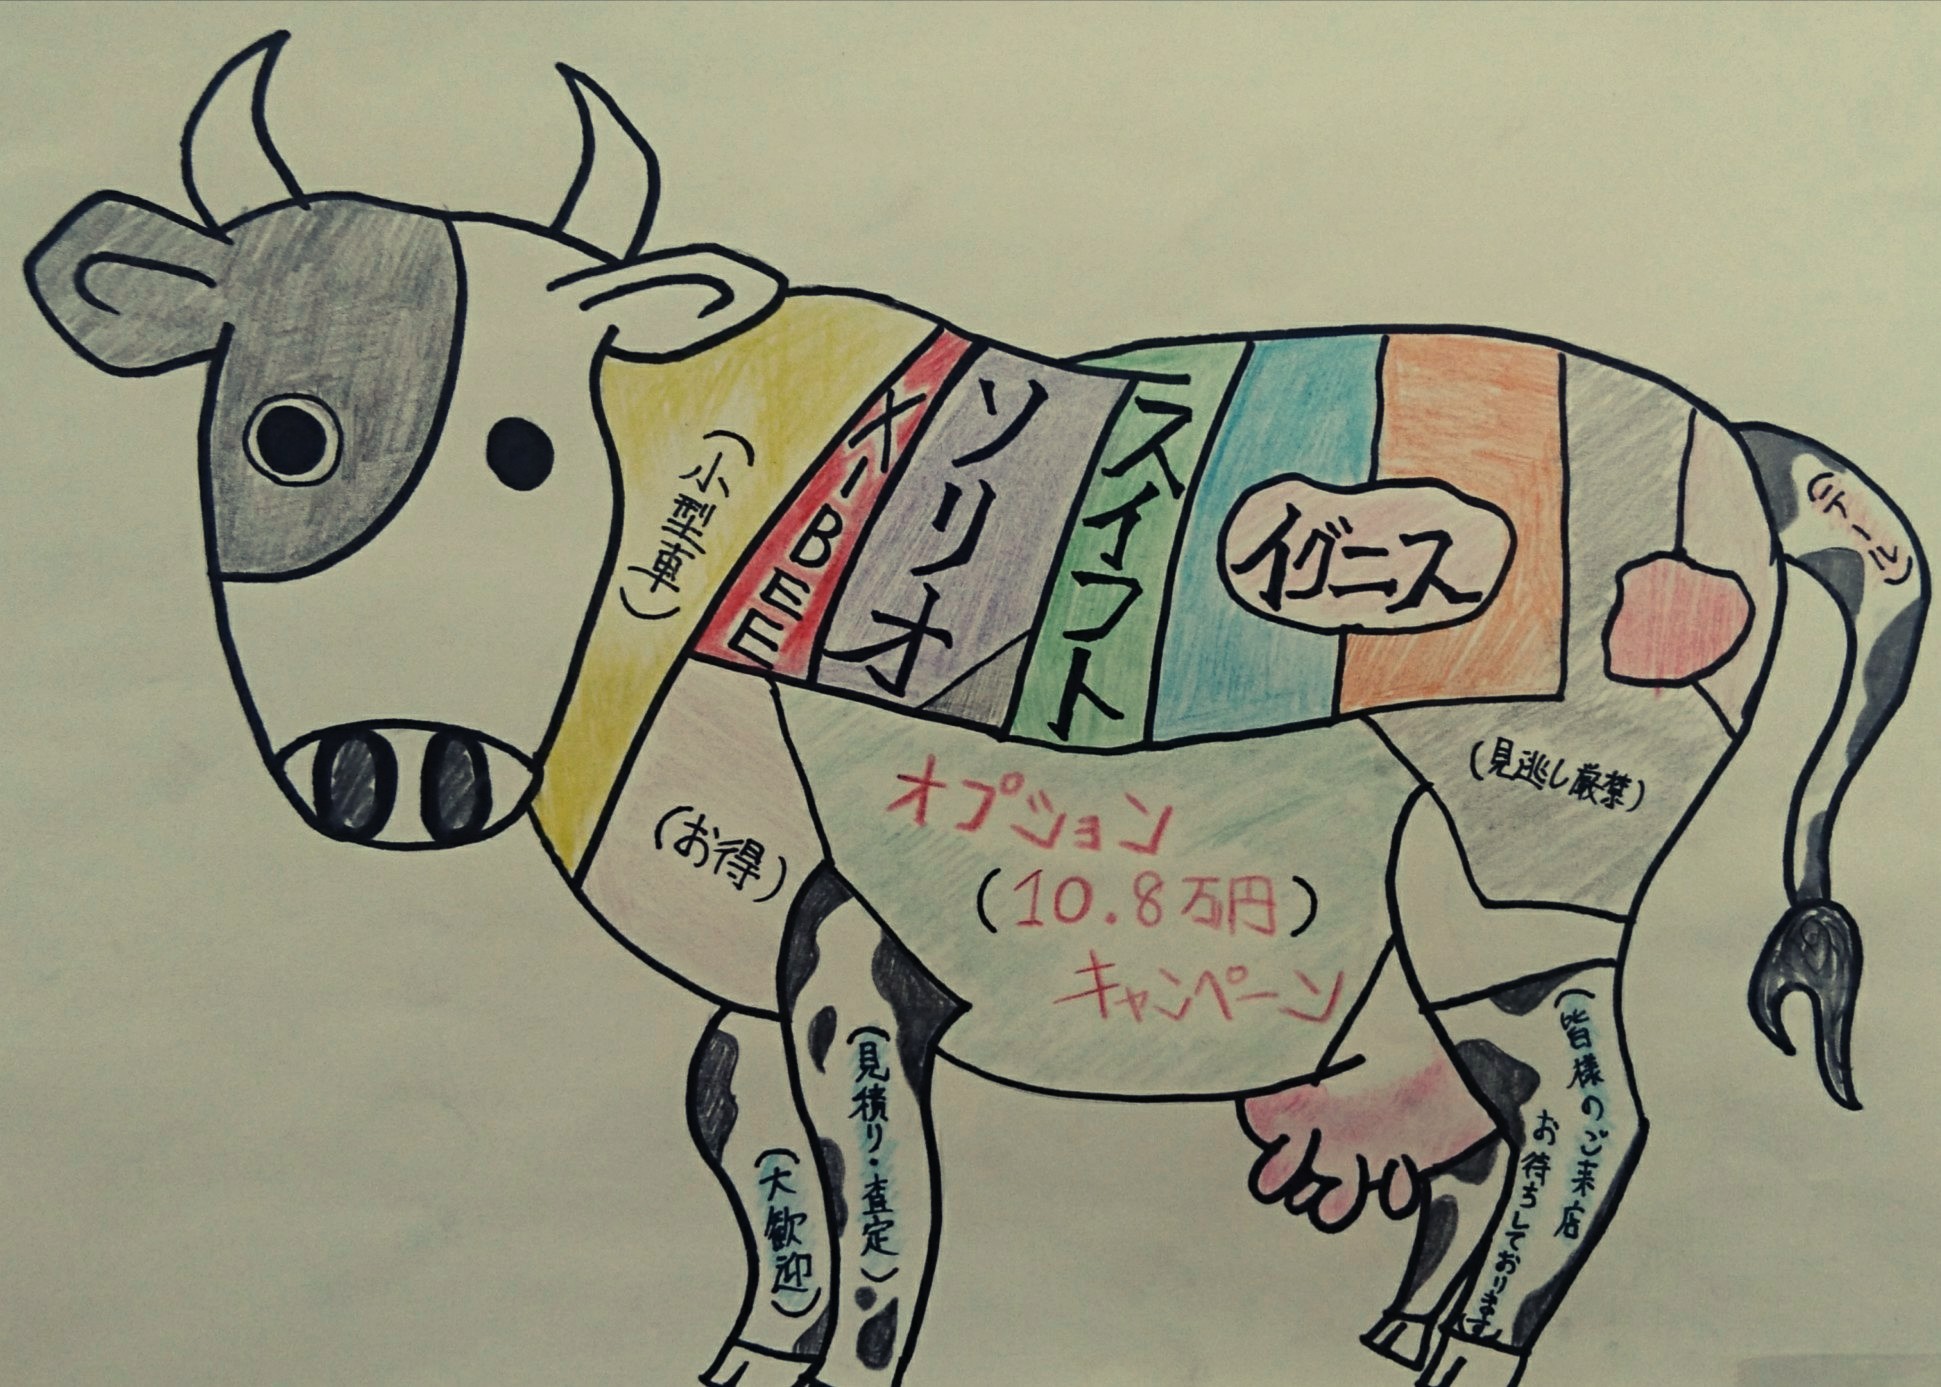 (小型車)
X-BEE
ソリオ
スイフト
イグニス
(テール)
(見逃し厳禁)
(お得)
オプション
(10.8万円)
キャンペーン
(見積り・査定)
(大歓迎)
(皆様のご来店
お待ちしております)